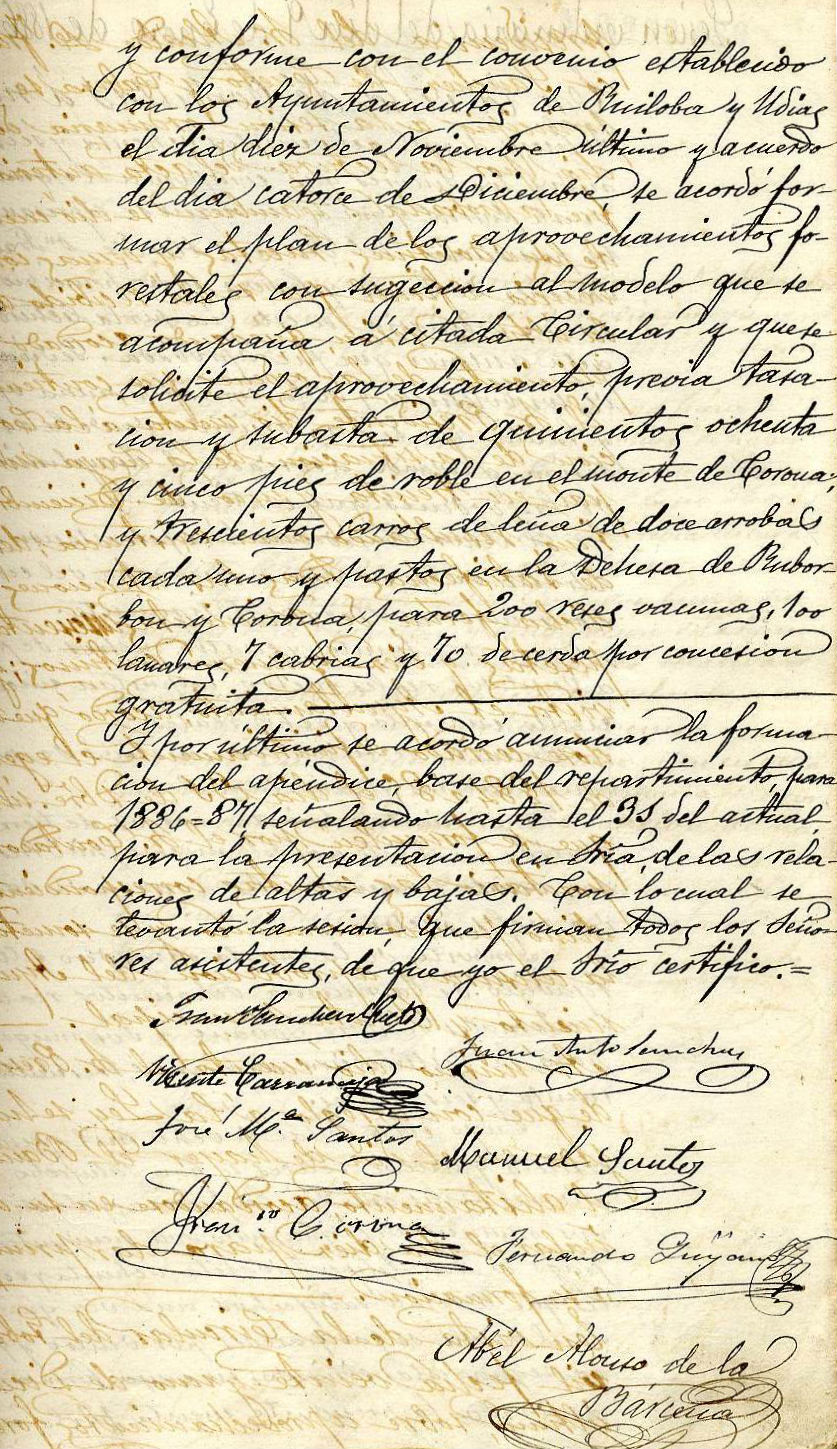 y conforme con el convenio establecido
con los Ayuntamientos de Ruiloba y Udias
el dia diez de Noviembre último y acuerdo
del dia catorce de Diciembre, se acordó for-
mar el plan de los aprovechamientos fo-
restales con sugeccion al modelo que se
acompaña á citada Circular y que se
solicite el aprovechamiento, previa tasa-
cion y subasta de quinientos ochenta
y cinco pies de roble en el monte de Corona;
y trescientos carros de leña de doce arrobas
cada uno y pastos en la Dehesa de Rubor-
bon y Corona, para 200 reses vacunas, 100
lanares, 7 cabrias y 70 de cerda por concesion
gratuita.
Y por último se acordó anunciar la forma-
cion del apéndice, base del repartimiento para
1886=87, señalando hasta el 31 del actual,
para la presentacion en Sría, de las rela-
ciones de altas y bajas. Con lo cual se
levantó la sesion, que firman todos los Seño-
res asistentes, de que yo el Srio certifico.=
Juan Anto Sanchez
Vicente
José M.ª Santos
Manuel Santos
Fran.co Corona
Fernando
Abél Alonso de la
Bárcena